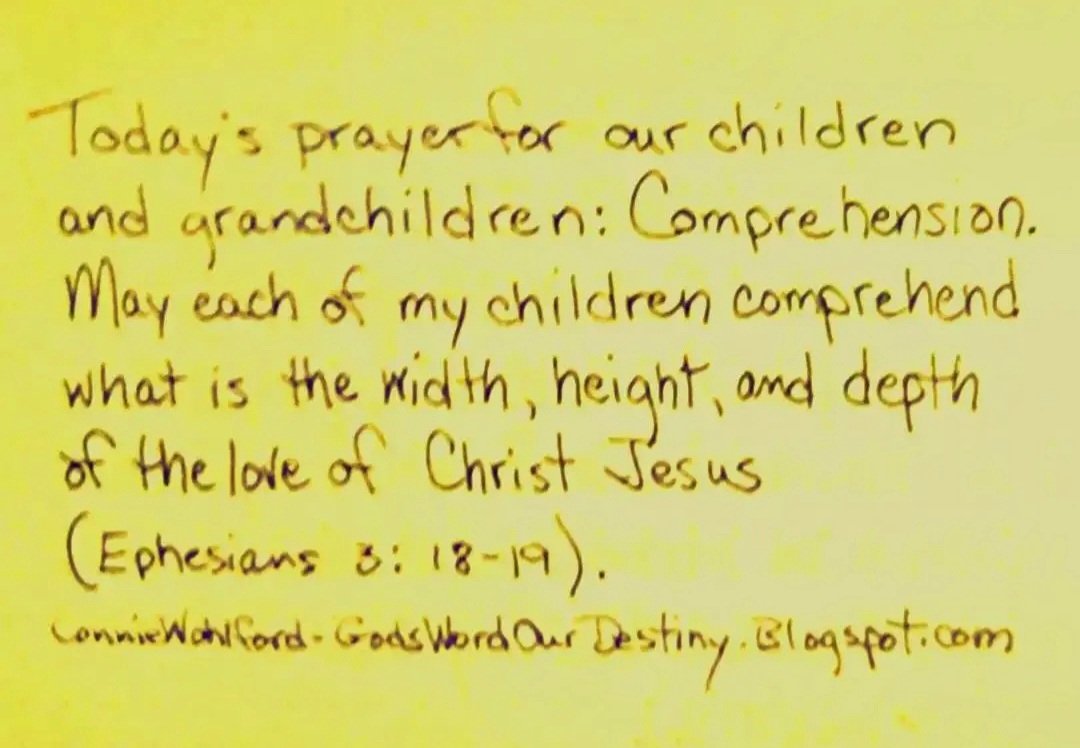 Today's prayer for our children
and grandchildren: Comprehension.
May each of my children comprehend
what is the width, height, and depth
of the love of Christ Jesus
(Ephesians 3: 18-19).
ConnieWohlford-GodsWordOurDestiny.Blogspot.com